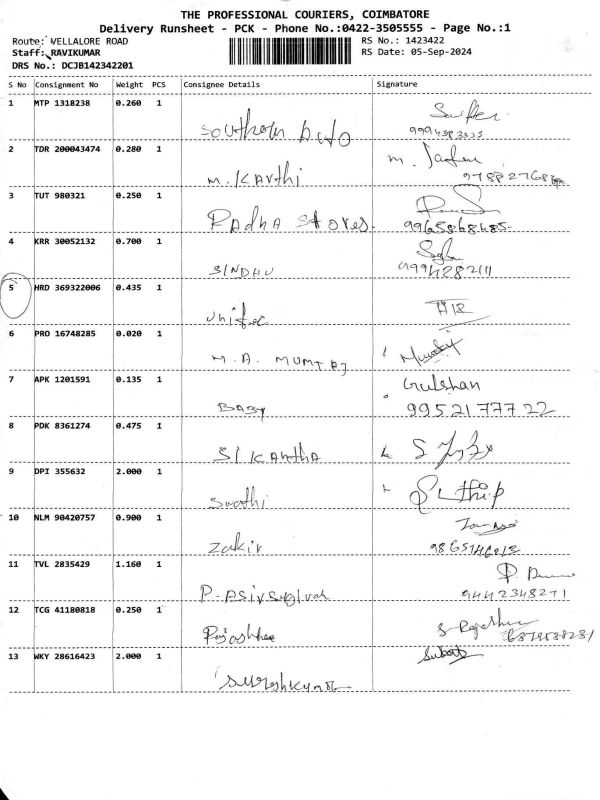 THE PROFESSIONAL COURIERS, COIMBATORE
Delivery Runsheet - PCK - Phone No.:0422-3505555 - Page No.:1
Route: VELLALORE ROAD
RS No.: 1423422
Staff: RAVIKUMAR
RS Date: 05-Sep-2024
DRS No.: DCJB142342201
S No Consignment No Weight PCS Consignee Details Signature
1 MTP 1318238 0.260 1
Southern Auto
2 TDR 200043474 0.280 1
M. Karthi
3 TUT 980321 0.250 1
Radha Stores. 9965868485
4 KRR 30052132 0.700 1
SINDHU 9994282111
5 HRD 369322006 0.435 1
Unitec
6 PRO 16748285 0.020 1
M. A. MUMTAJ
7 APK 1201591 0.135 1 Gulshan
BABY 9952177722
8 PDK 8361274 0.475 1
SIKANtHA
9 DPI 355632 2.000 1
Swathi
10 NLM 90420757 0.900 1
Zakir
11 TVL 2835429 1.160 1
9442348271
12 TCG 41180818 0.250 1
Rajashree
13 WKY 28616423 2.000 1
Sureshkumar